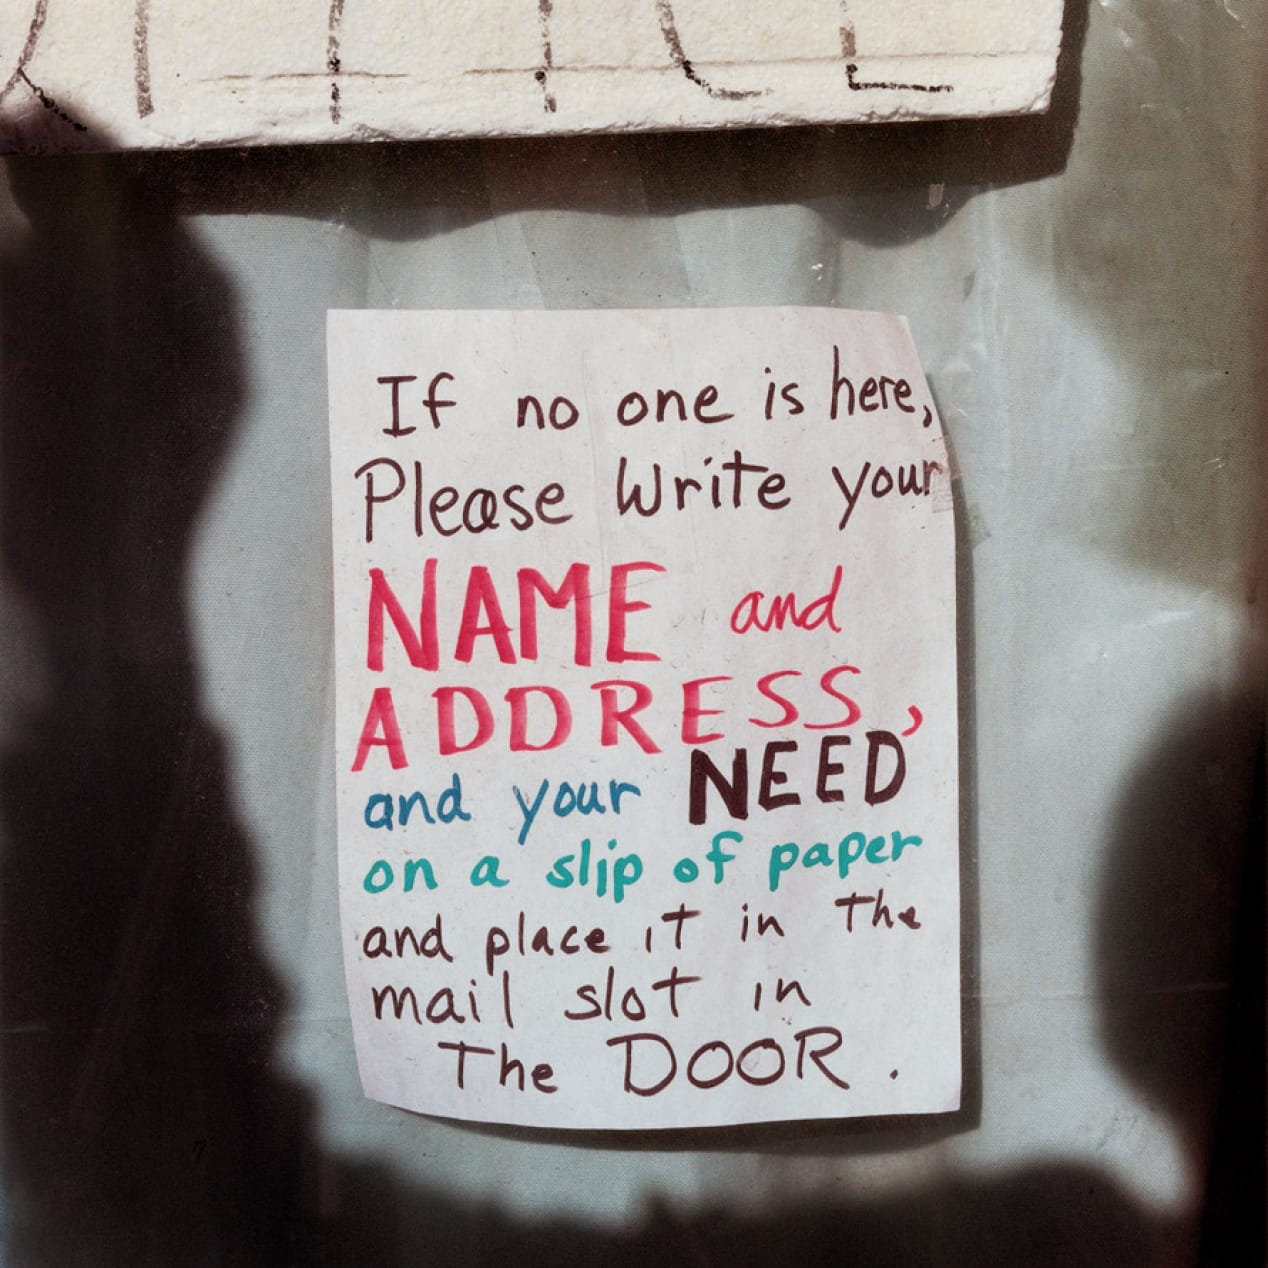 If no one is here,
Please Write your
NAME and
ADDRESS,
and your NEED
on a slip of paper
and place it in the
mail slot in
The DOOR.